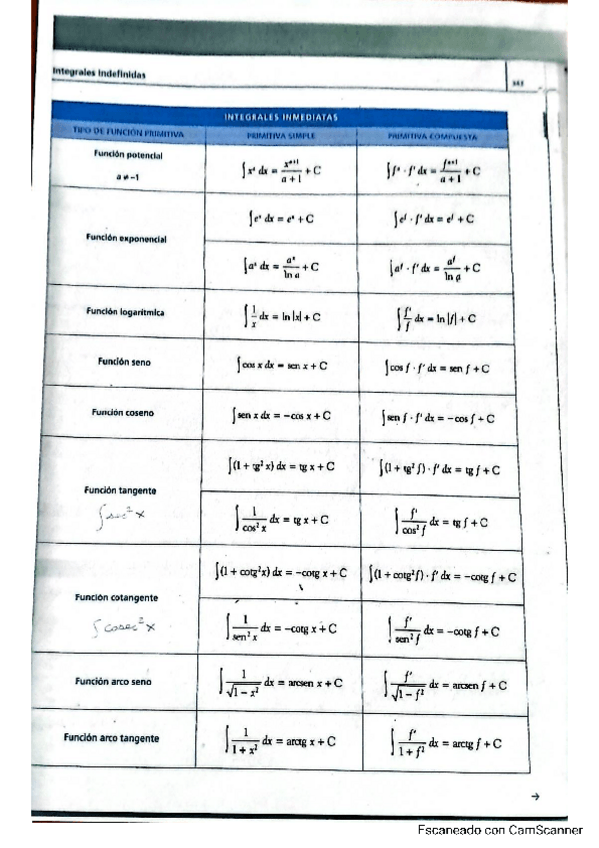 Integrales Indefinidas
INTEGRALES INMEDIATAS
TIPO DE FUNCIÓN PRIMITIVA PRIMITIVA SIMPLE PRIMITIVA COMPUESTA
Función potencial
a ≠ −1
∫xᵃ dx = xᵃ⁺¹/(a + 1) + C ∫fᵃ · f′ dx = fᵃ⁺¹/(a + 1) + C
Función exponencial
∫eˣ dx = eˣ + C ∫eᶠ · f′ dx = eᶠ + C
∫aˣ dx = aˣ/ln a + C ∫aᶠ · f′ dx = aᶠ/ln a + C
Función logarítmica ∫1/x dx = ln |x| + C ∫f′/f dx = ln |f| + C
Función seno ∫cos x dx = sen x + C ∫cos f · f′ dx = sen f + C
Función coseno ∫sen x dx = −cos x + C ∫sen f · f′ dx = −cos f + C
Función tangente
∫sec² x
∫(1 + tg² x) dx = tg x + C ∫(1 + tg² f) · f′ dx = tg f + C
∫1/cos² x dx = tg x + C ∫f′/cos² f dx = tg f + C
Función cotangente
∫cosec² x
∫(1 + cotg²x) dx = −cotg x + C ∫(1 + cotg²f) · f′ dx = −cotg f + C
∫1/sen² x dx = −cotg x + C ∫f′/sen² f dx = −cotg f + C
Función arco seno ∫1/√(1 − x²) dx = arcsen x + C ∫f′/√(1 − f²) dx = arcsen f + C
Función arco tangente ∫1/(1 + x²) dx = arctg x + C ∫f′/(1 + f²) dx = arctg f + C
→
Escaneado con CamScanner